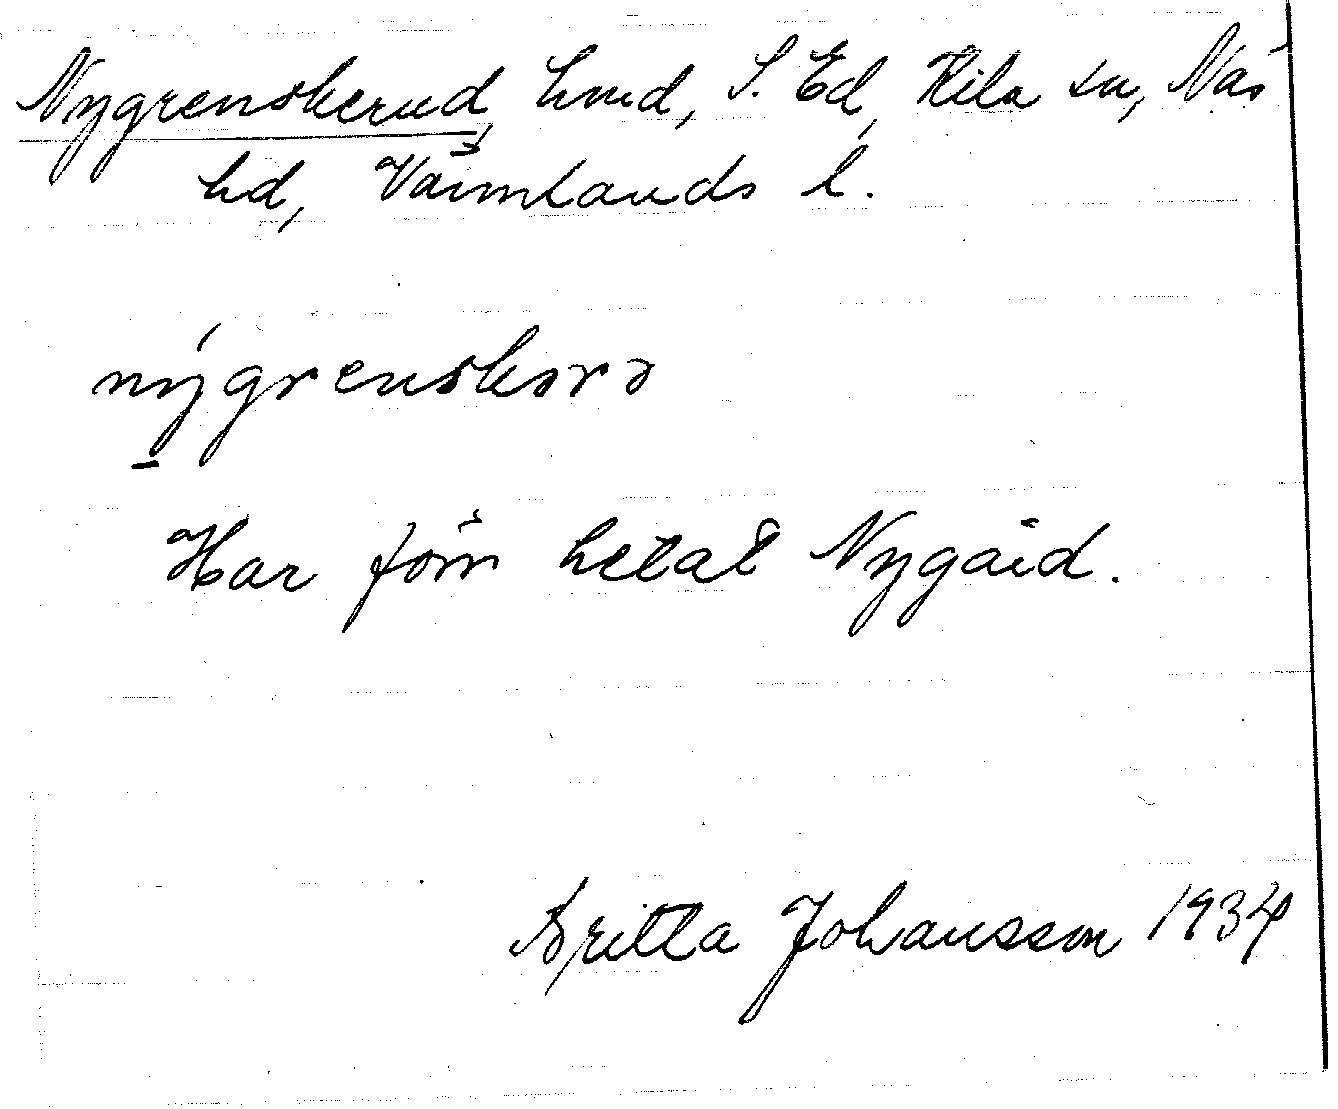 Nygrenskerud, hmd, S. Ed, Kila sn, Näs
hd, Värmlands l.
nýgrenskərə
Har förr hetat Nygård.
Britta Johansson 1934